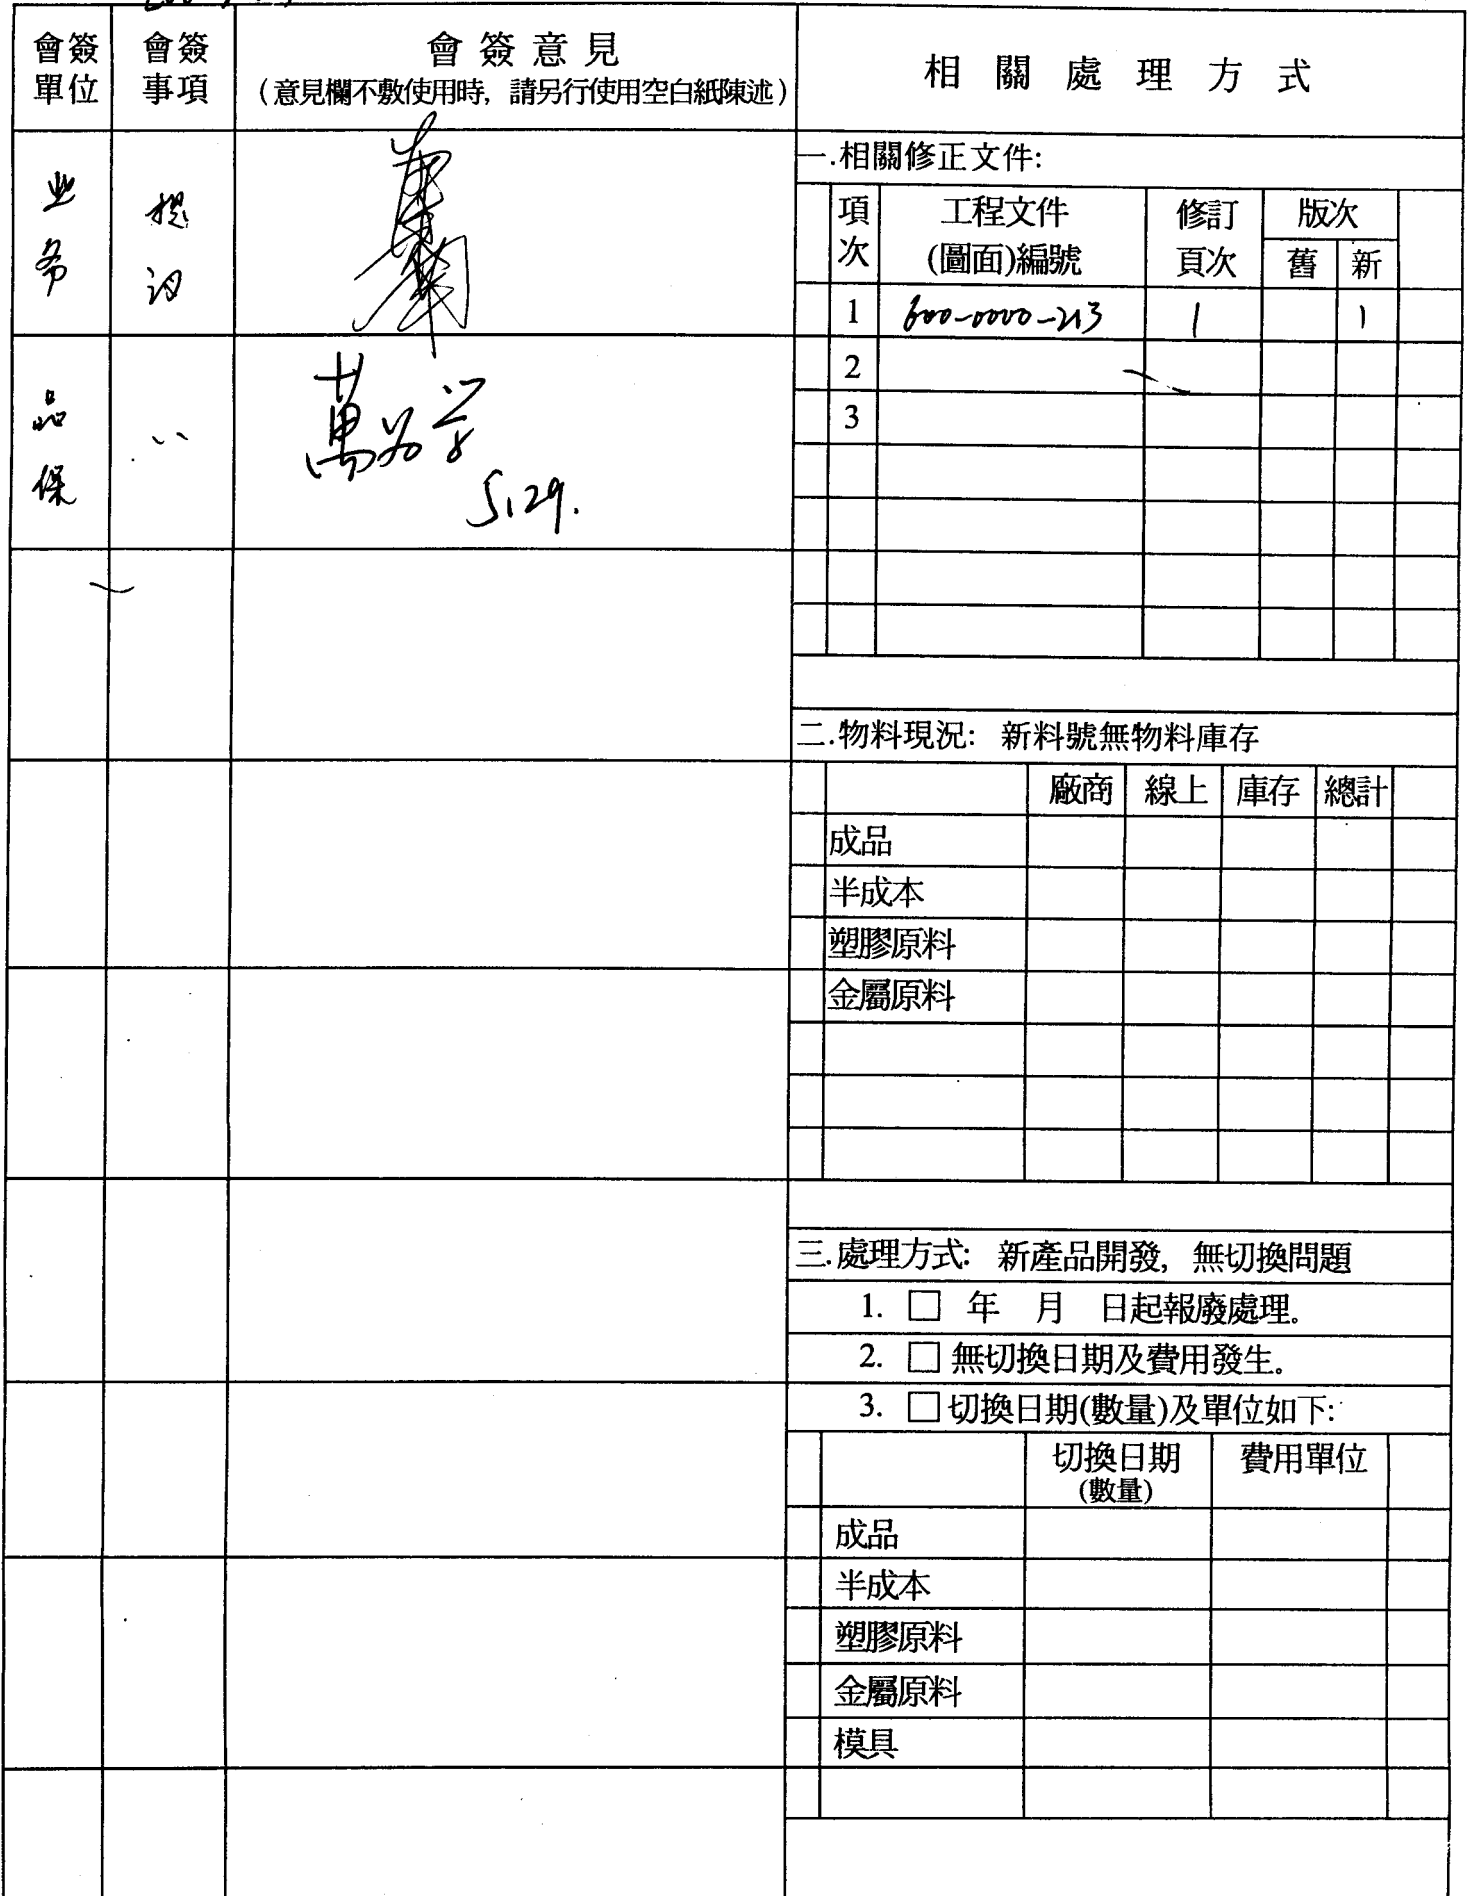 會簽單位
會簽事項
會簽意見
(意見欄不敷使用時, 請另行使用空白紙陳述)
相關處理方式
业务
品保
5.29.
一.相關修正文件:
項次
工程文件(圖面)編號
修訂頁次
版次
舊 新
1 600-0000-213 1 1
2
3
二.物料現況: 新料號無物料庫存
廠商 線上 庫存 總計
成品
半成本
塑膠原料
金屬原料
三.處理方式: 新產品開發, 無切換問題
1. □ 年 月 日起報廢處理。
2. □ 無切換日期及費用發生。
3. □ 切換日期(數量)及單位如下:
切換日期 費用單位
(數量)
成品
半成本
塑膠原料
金屬原料
模具